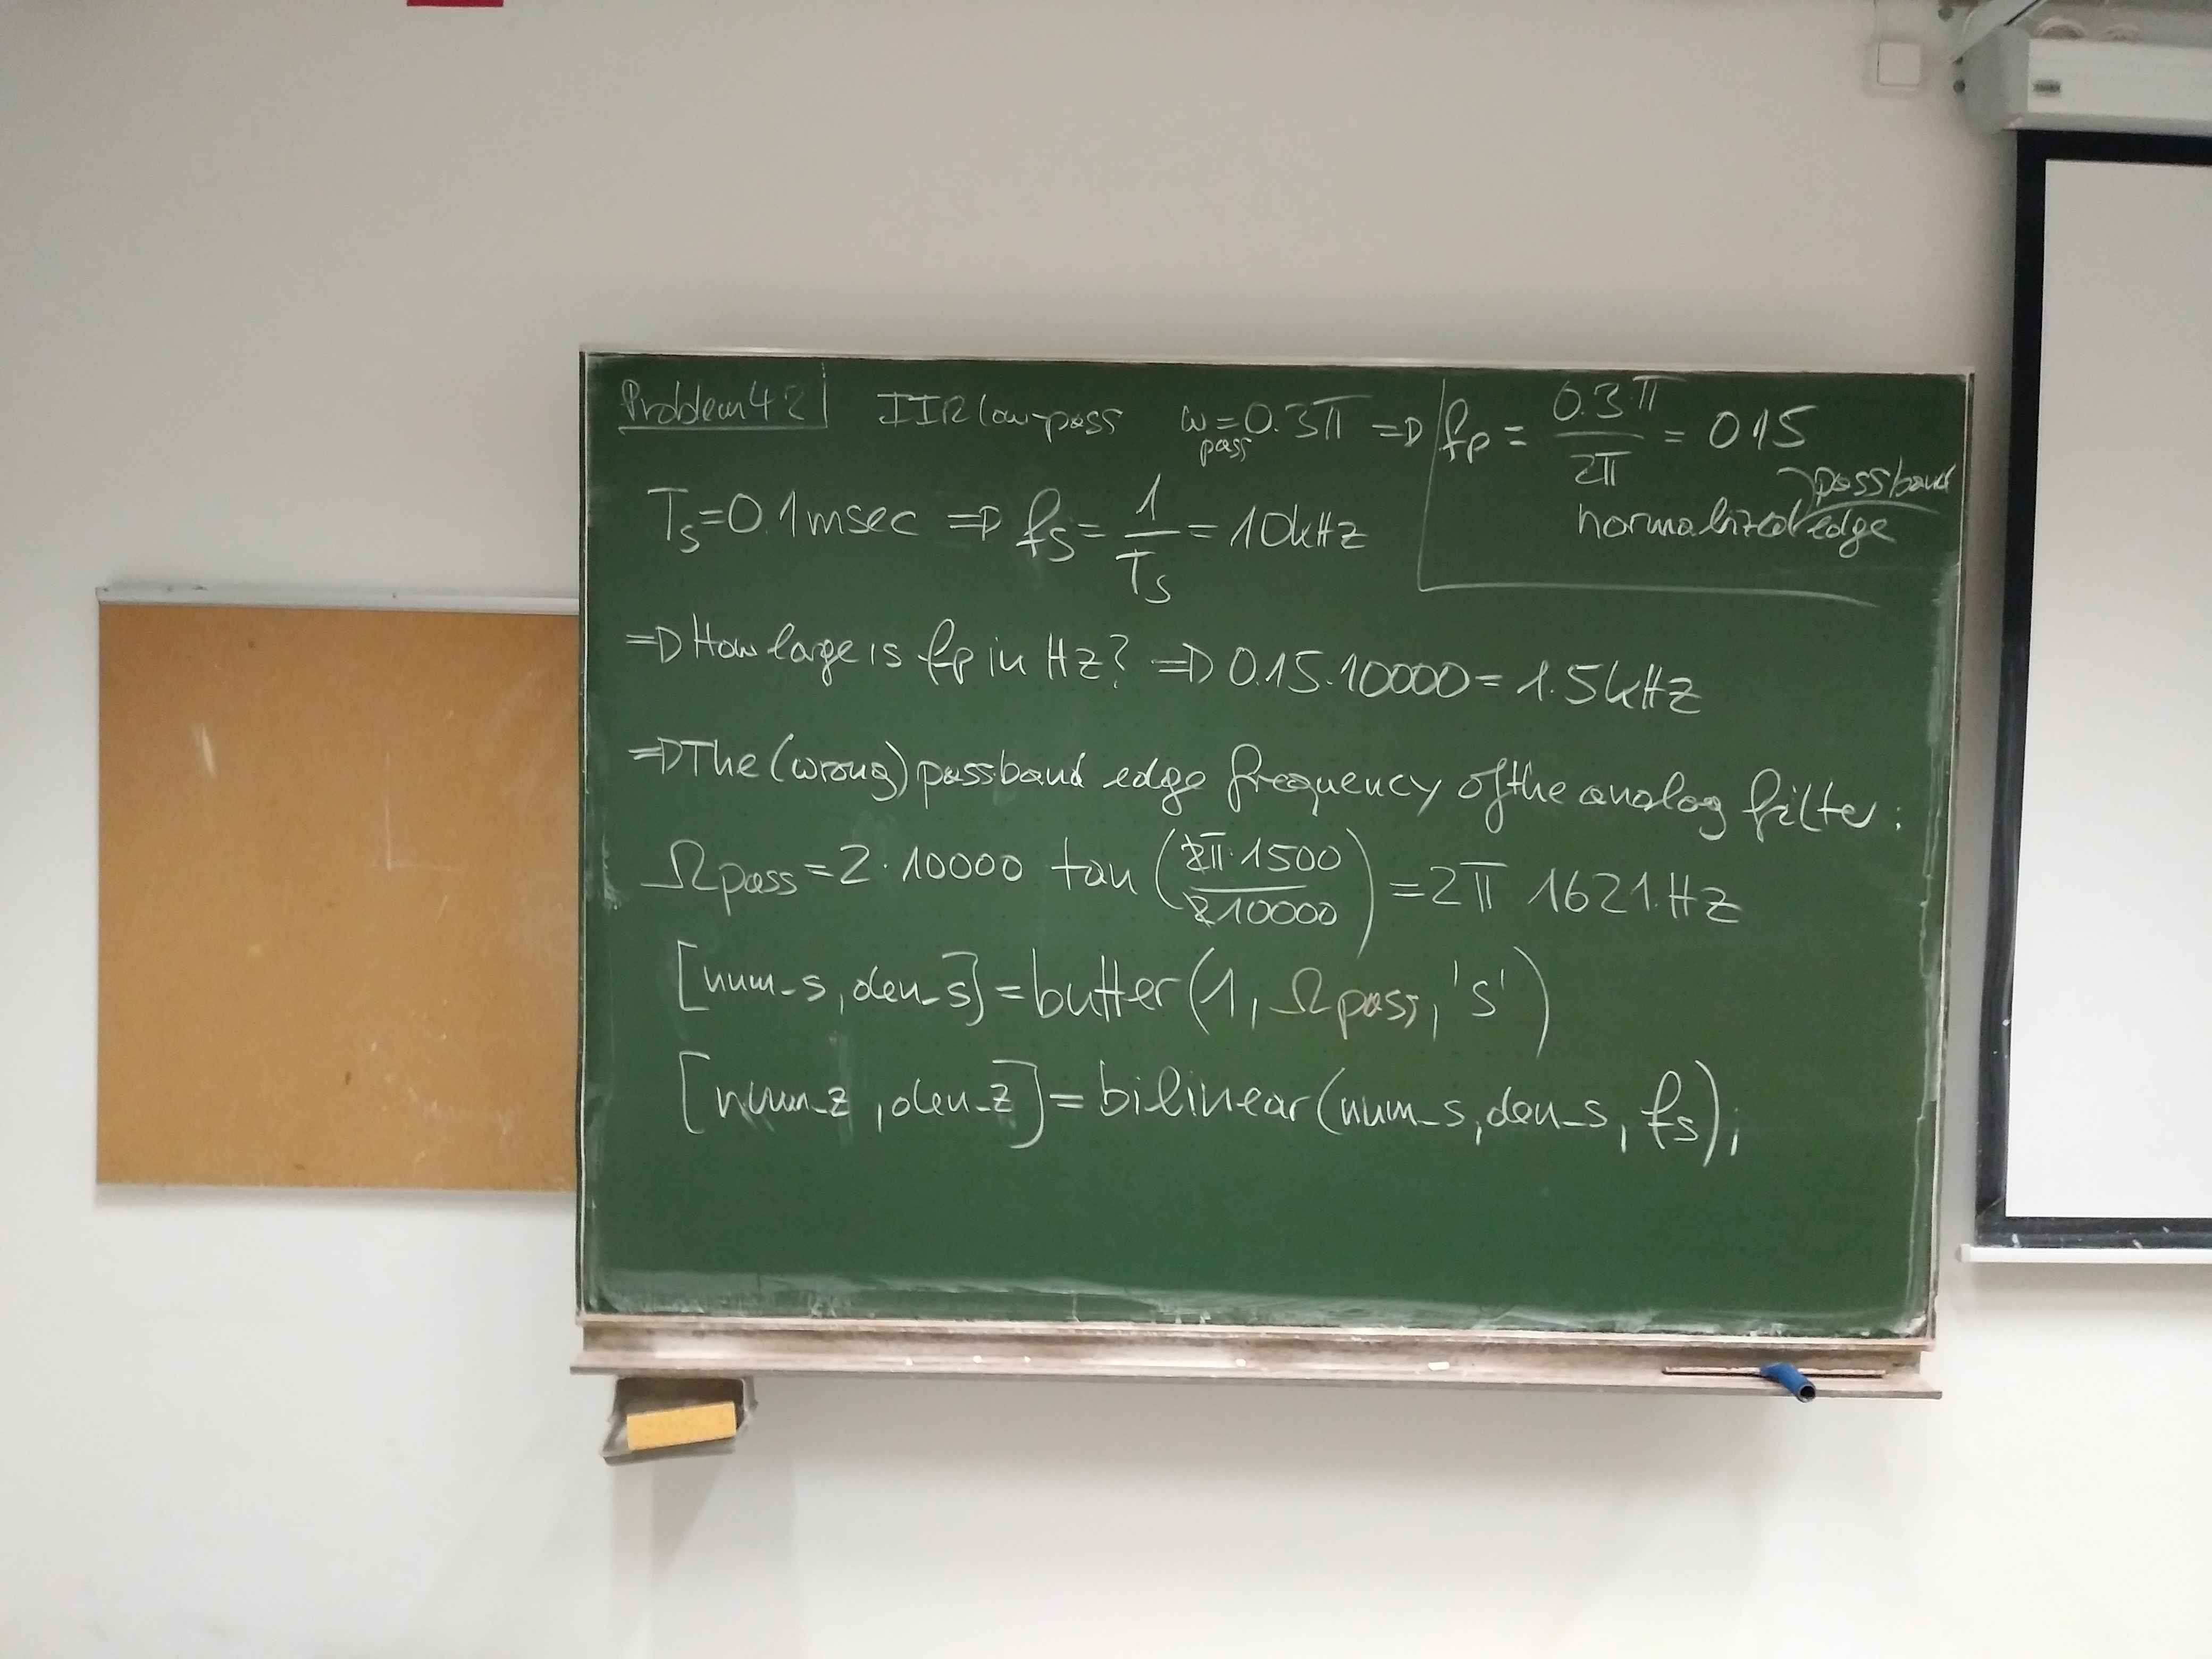 Problem 4.2 IIR low-pass ω_pass = 0.3π ⇒ fp = 0.3·π / 2π = 0.15
normalized passband edge
Ts = 0.1 msec ⇒ fs = 1 / Ts = 10 kHz
⇒ How large is fp in Hz? ⇒ 0.15·10000 = 1.5 kHz
⇒ The (wrong) passband edge frequency of the analog filter:
Ωpass = 2·10000 tan (2π·1500 / 2 10000) = 2π 1621 Hz
[num_s, den_s] = butter(1, Ωpass, 's')
[num_z, den_z] = bilinear(num_s, den_s, fs);